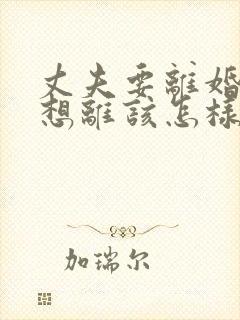 丈夫要離婚
想離該怎樣
加瑞尔